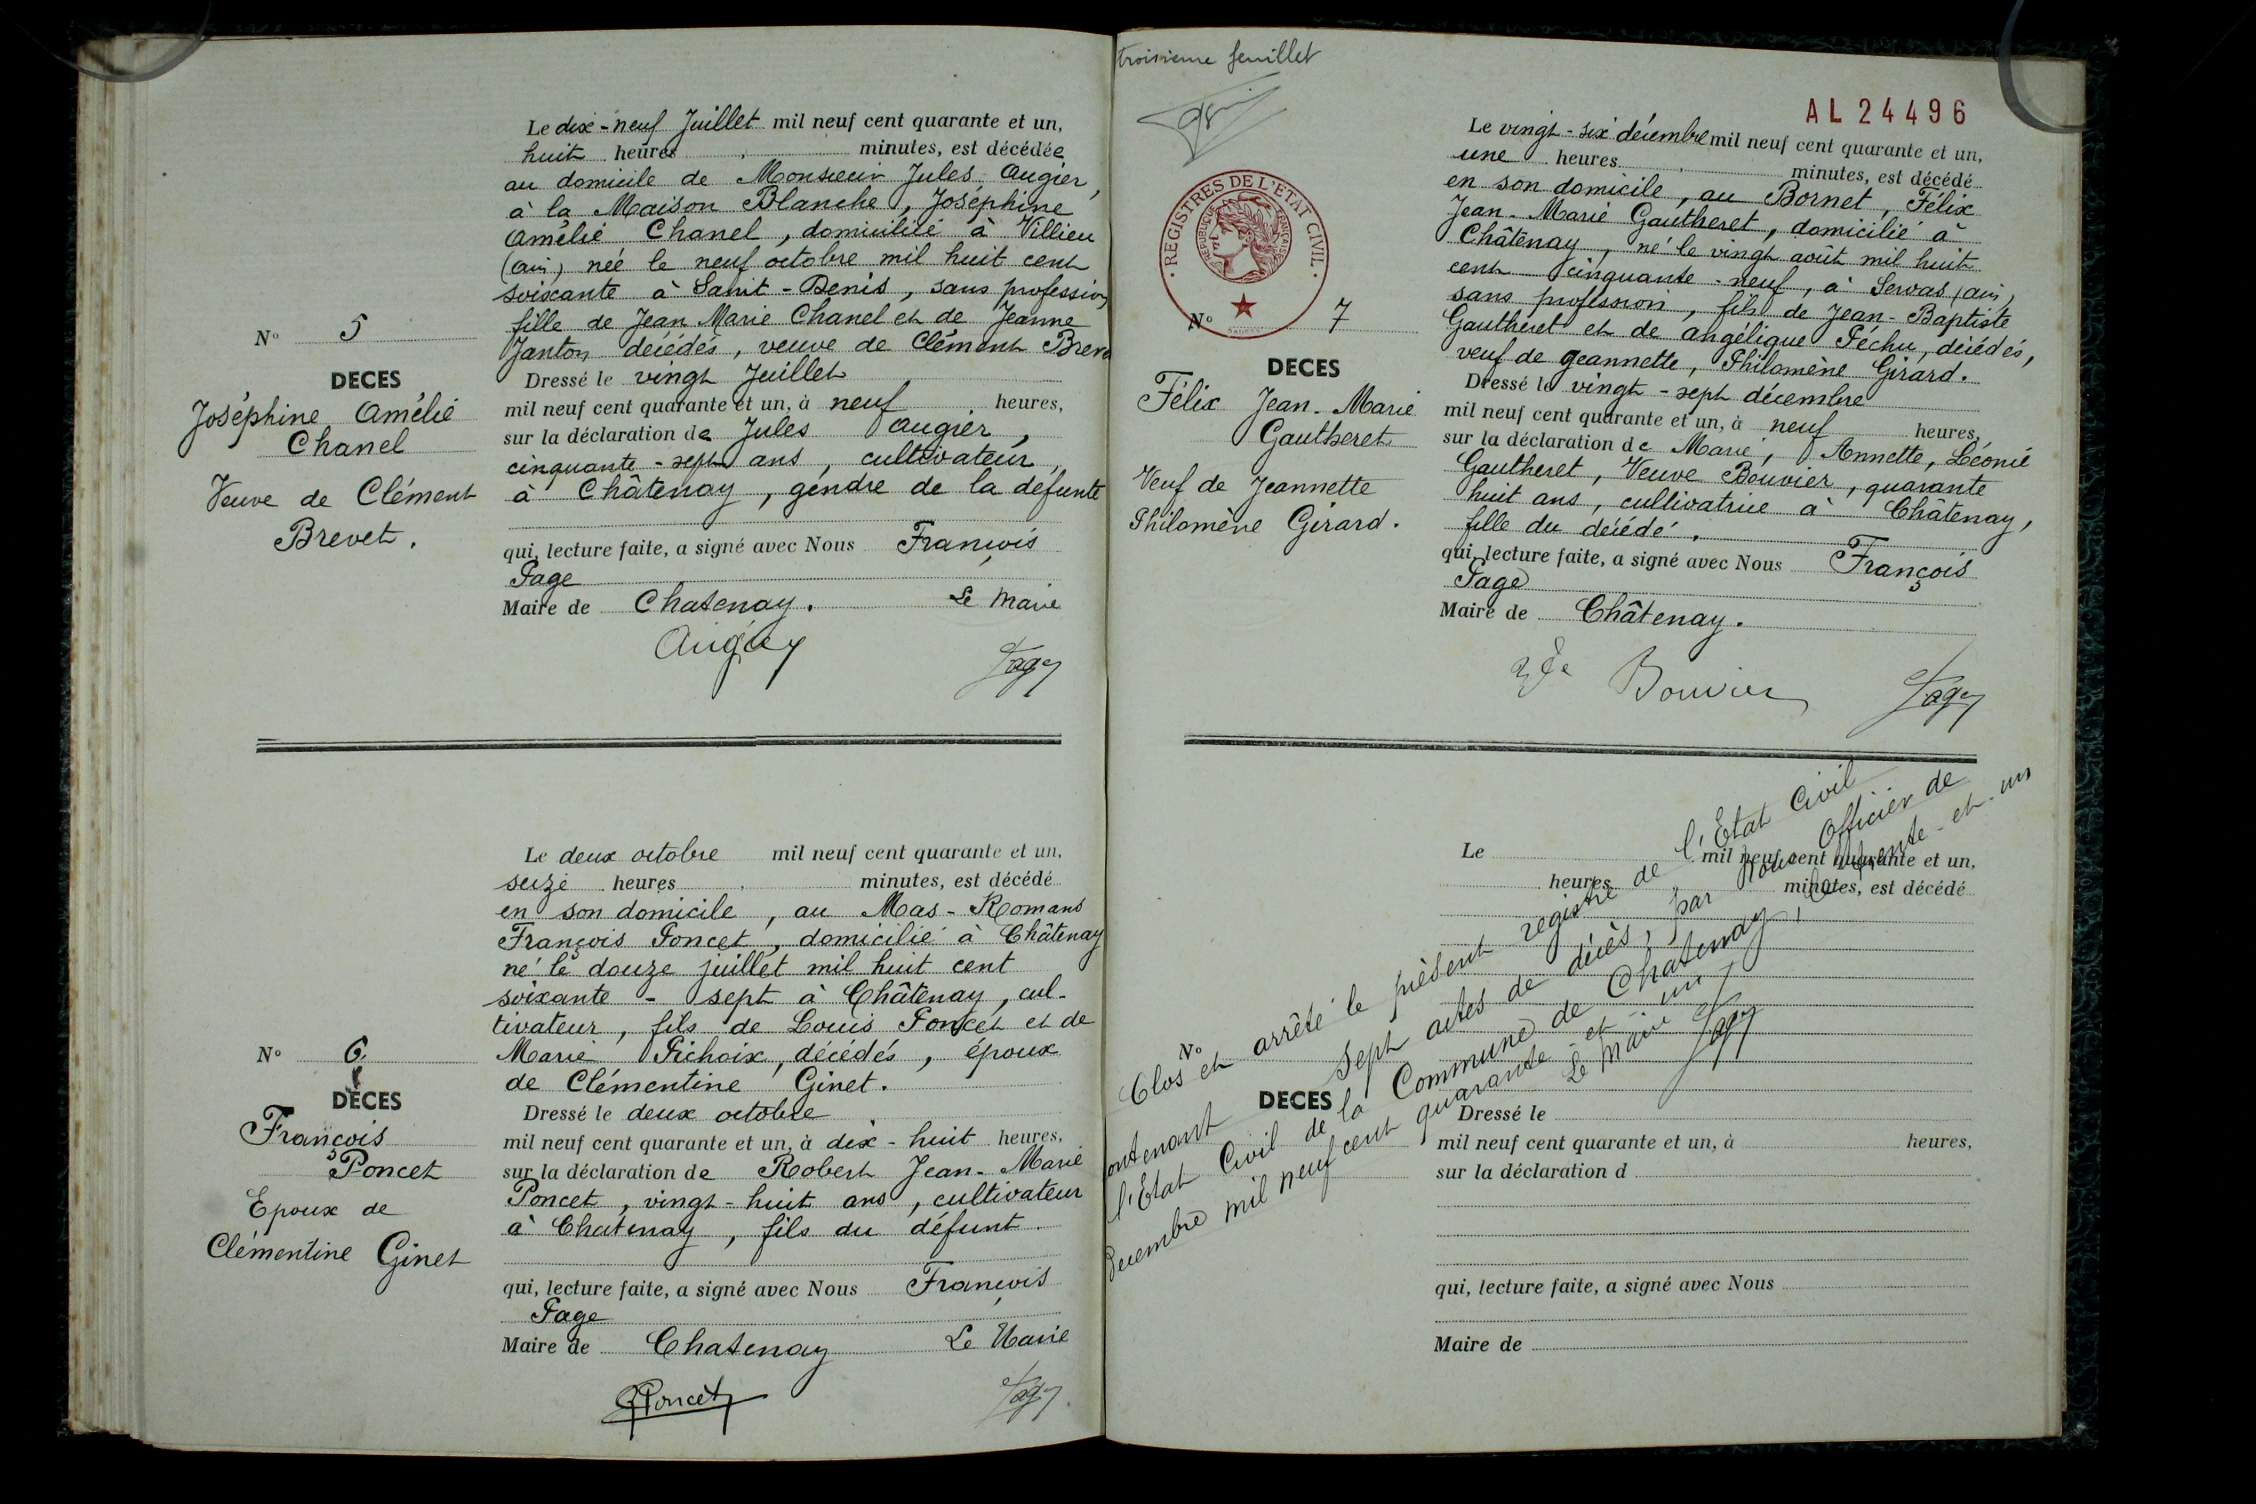 Le dix-neuf Juillet mil neuf cent quarante et un,
huit heures minutes, est décédée
au domicile de Monsieur Jules Augier,
à la Maison Blanche, Joséphine
Amélie Chanel, domicilié à Villieu
(Ain) née le neuf octobre mil huit cent
soixante à Saint-Denis, sans profession,
fille de Jean Marie Chanel et de Jeanne
Janton décédés, veuve de Clément Brevet
Dressé le vingt Juillet
mil neuf cent quarante et un, à neuf heures,
sur la déclaration de Jules Augier,
cinquante-sept ans, cultivateur,
à Châtenay, gendre de la défunte
qui, lecture faite, a signé avec Nous François
Page
Maire de Chatenay. Le Maire
Augey
Page
N° 5
DECES
Joséphine Amélie
Chanel
Veuve de Clément
Brevet.
Le deux octobre mil neuf cent quarante et un,
seize heures minutes, est décédé
en son domicile, au Mas-Romans
François Poncet, domicilié à Châtenay
né le douze juillet mil huit cent
soixante-sept à Châtenay, cul-
tivateur, fils de Louis Poncet et de
Marie Pichoix, décédés, époux
de Clémentine Ginet.
Dressé le deux octobre
mil neuf cent quarante et un, à dix-huit heures,
sur la déclaration de Robert Jean-Marie
Poncet, vingt-huit ans, cultivateur
à Chatenay, fils du défunt.
qui, lecture faite, a signé avec Nous François
Page
Maire de Chatenay Le Maire
Poncet
Page
N° 6
DECES
François
Poncet
Epoux de
Clémentine Ginet
troisième feuillet
AL 24496
REGISTRES DE L'ETAT CIVIL
REPUBLIQUE FRANÇAISE
N° 7
DECES
Félix Jean-Marie
Gautheret
Veuf de Jeannette
Philomène Girard.
Le vingt-six décembre mil neuf cent quarante et un,
une heures minutes, est décédé
en son domicile, au Bornet, Félix
Jean-Marie Gautheret, domicilié à
Châtenay, né le vingt août mil huit
cent cinquante-neuf, à Servas (Ain)
sans profession, fils de Jean-Baptiste
Gautheret et de Angélique Péchu, décédés,
veuf de Jeannette, Philomène Girard.
Dressé le vingt-sept décembre
mil neuf cent quarante et un, à neuf heures,
sur la déclaration de Marie, Annette, Léonie
Gautheret, Veuve Bouvier, quarante
huit ans, cultivatrice à Châtenay,
fille du décédé.
qui, lecture faite, a signé avec Nous François
Page
Maire de Châtenay.
Vve Bouvier
Page
Le mil neuf cent quarante et un,
heures minutes, est décédé
N°
DECES
Dressé le
mil neuf cent quarante et un, à heures,
sur la déclaration d
qui, lecture faite, a signé avec Nous
Maire de
Clos et arrêté le présent registre de l'Etat Civil
contenant sept actes de décès, par Nous Officier de
l'Etat Civil de la Commune de Chatenay, le trente-et-un
Décembre mil neuf cent quarante-et-un
Le Maire
Page